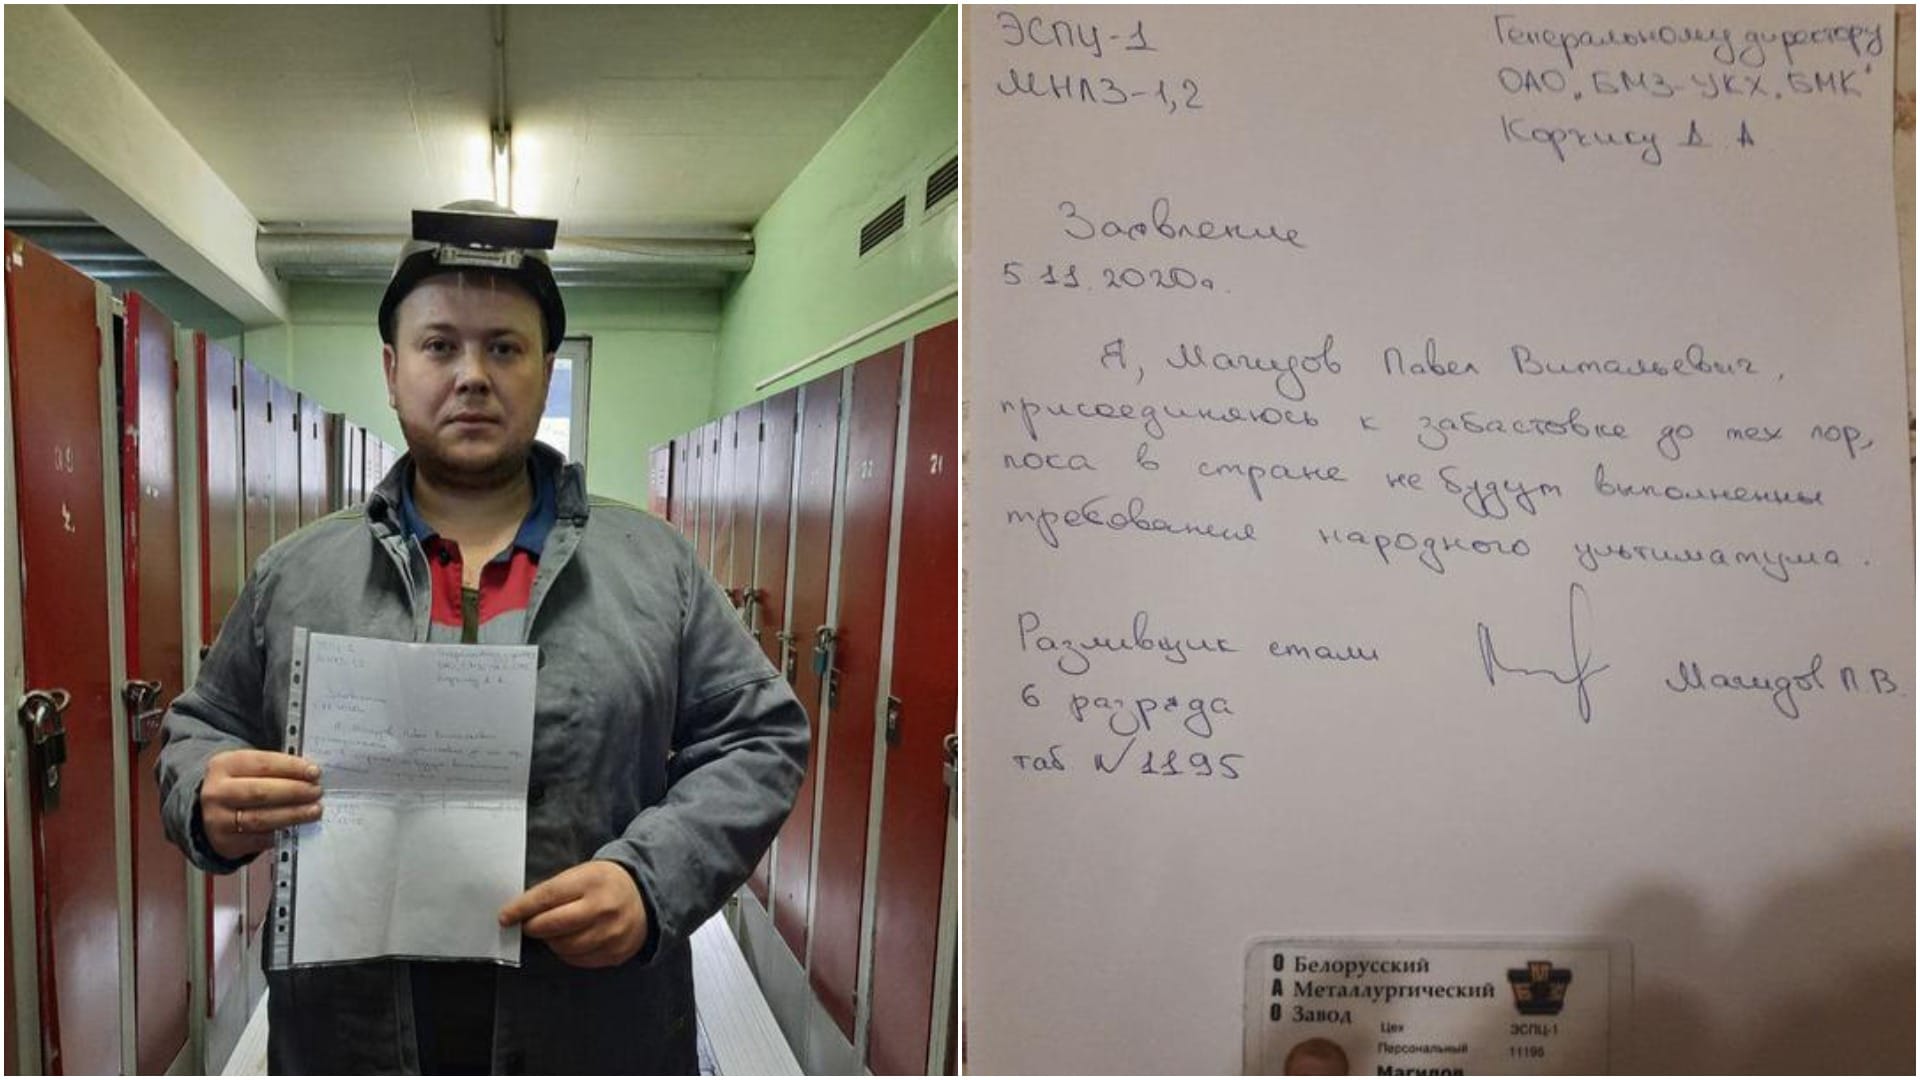 ЭСПЦ-1
МНЛЗ-1,2
Генеральному директору
ОАО "БМЗ-УКХ "БМК"
Корчику Д. А
Заявление
5 11. 2020г.
Я, Магидов Павел Витальевич,
присоединяюсь к забастовке до тех пор,
пока в стране не будут выполненны
требования народного ультиматума.
Разливщик стали
6 разряда
таб №1195
Магидов П.В.
О Белорусский
А Металлургический
О Завод
Цех ЭСПЦ-1
Персональный 11195
Магидов
22
21